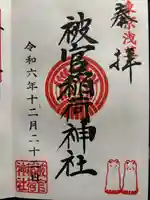 奉拝
被官稲荷神社
令和六年十二月二十一日